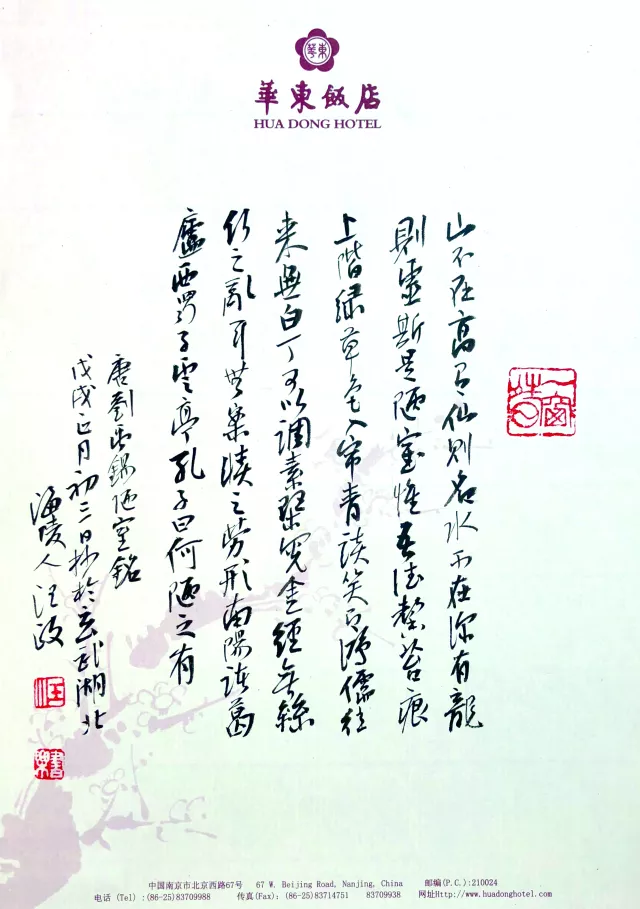 華東飯店
HUA DONG HOTEL
山不在高有仙则名水不在深有龍
則靈斯是陋室惟吾德馨苔痕
上階绿草色入帘青談笑有鸿儒往
来無白丁可以調素琴閲金經無絲
竹之亂耳無案牍之劳形南陽诸葛
廬西蜀子雲亭孔子曰何陋之有
唐劉禹錫陋室銘
戊戌正月初三日抄於玄武湖北
海陵人汪政
中国南京市北京西路67号 67 W. Beijing Road, Nanjing, China 邮编(P.C.):210024
电话 (Tel) :(86-25)83709988 传真(Fax): (86-25)83714751 83709938 网址Http://www.huadonghotel.com